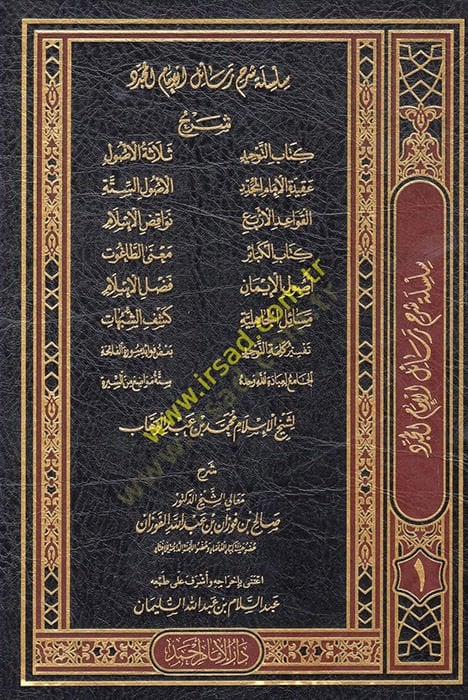 سلسلة شرح رسائل الإمام المجدد
شرح
كتاب التوحيد ثلاثة الأصول
عقيدة الإمام المجدد الأصول الستة
القواعد الأربع نواقض الإسلام
كتاب الكبائر معنى الطاغوت
أصول الإيمان فضل الإسلام
مسائل الجاهلية كشف الشبهات
تفسير كلمة التوحيد بعض فوائد سورة الفاتحة
الجامع لعبادة الله وحده ستة مواضع من السيرة
لشيخ الإسلام محمد بن عبد الوهاب
شرح
معالي الشيخ الدكتور
صالح بن فوزان بن عبد الله الفوزان
عضو هيئة كبار العلماء وعضو اللجنة الدائمة للإفتاء
اعتنى بإخراجه وأشرف على طبعه
عبد السلام بن عبد الله السليمان
دار الإمام أحمد
سلسلة شرح رسائل الإمام المجدد
١
www.irsad.com.tr